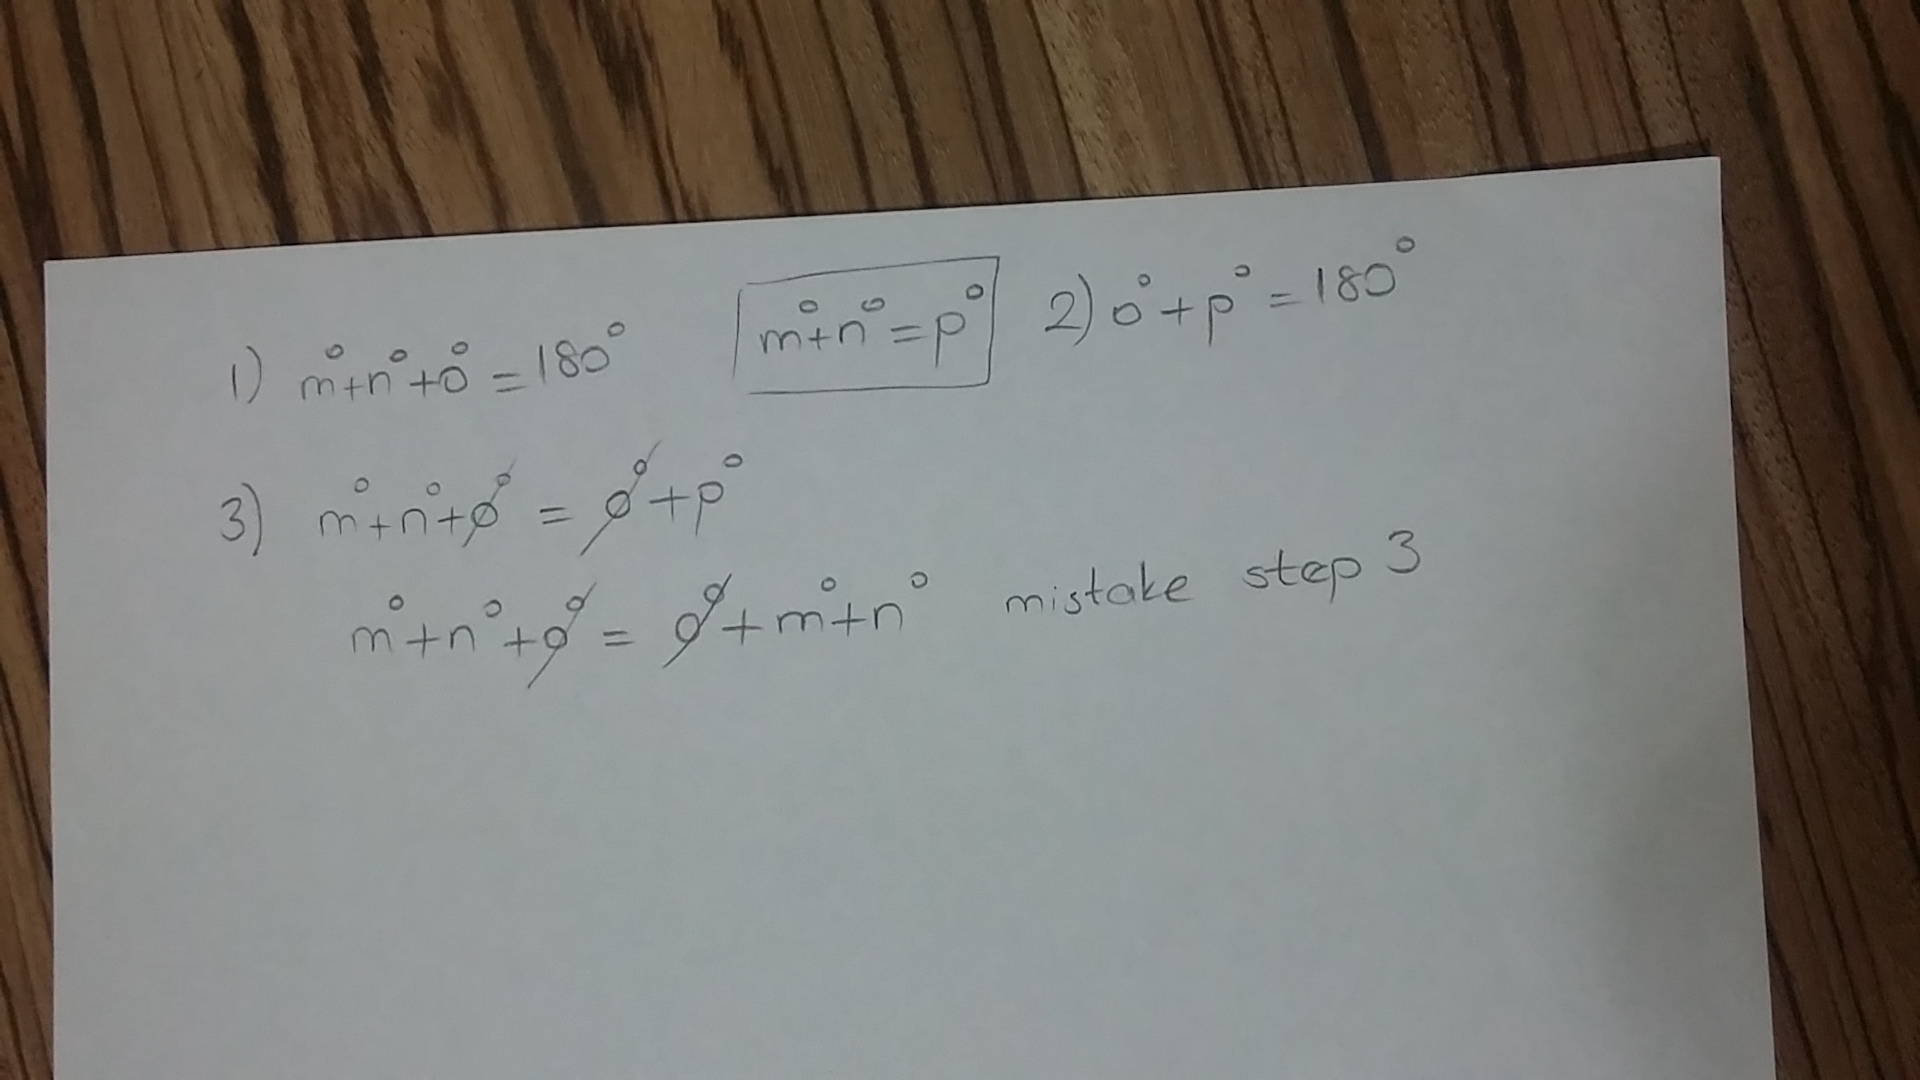 1) m°+n°+o° = 180° m°+n°=p° 2) o°+p°=180°
3) m°+n°+o° = o°+p°
m°+n°+o° = o°+m°+n° mistake step 3